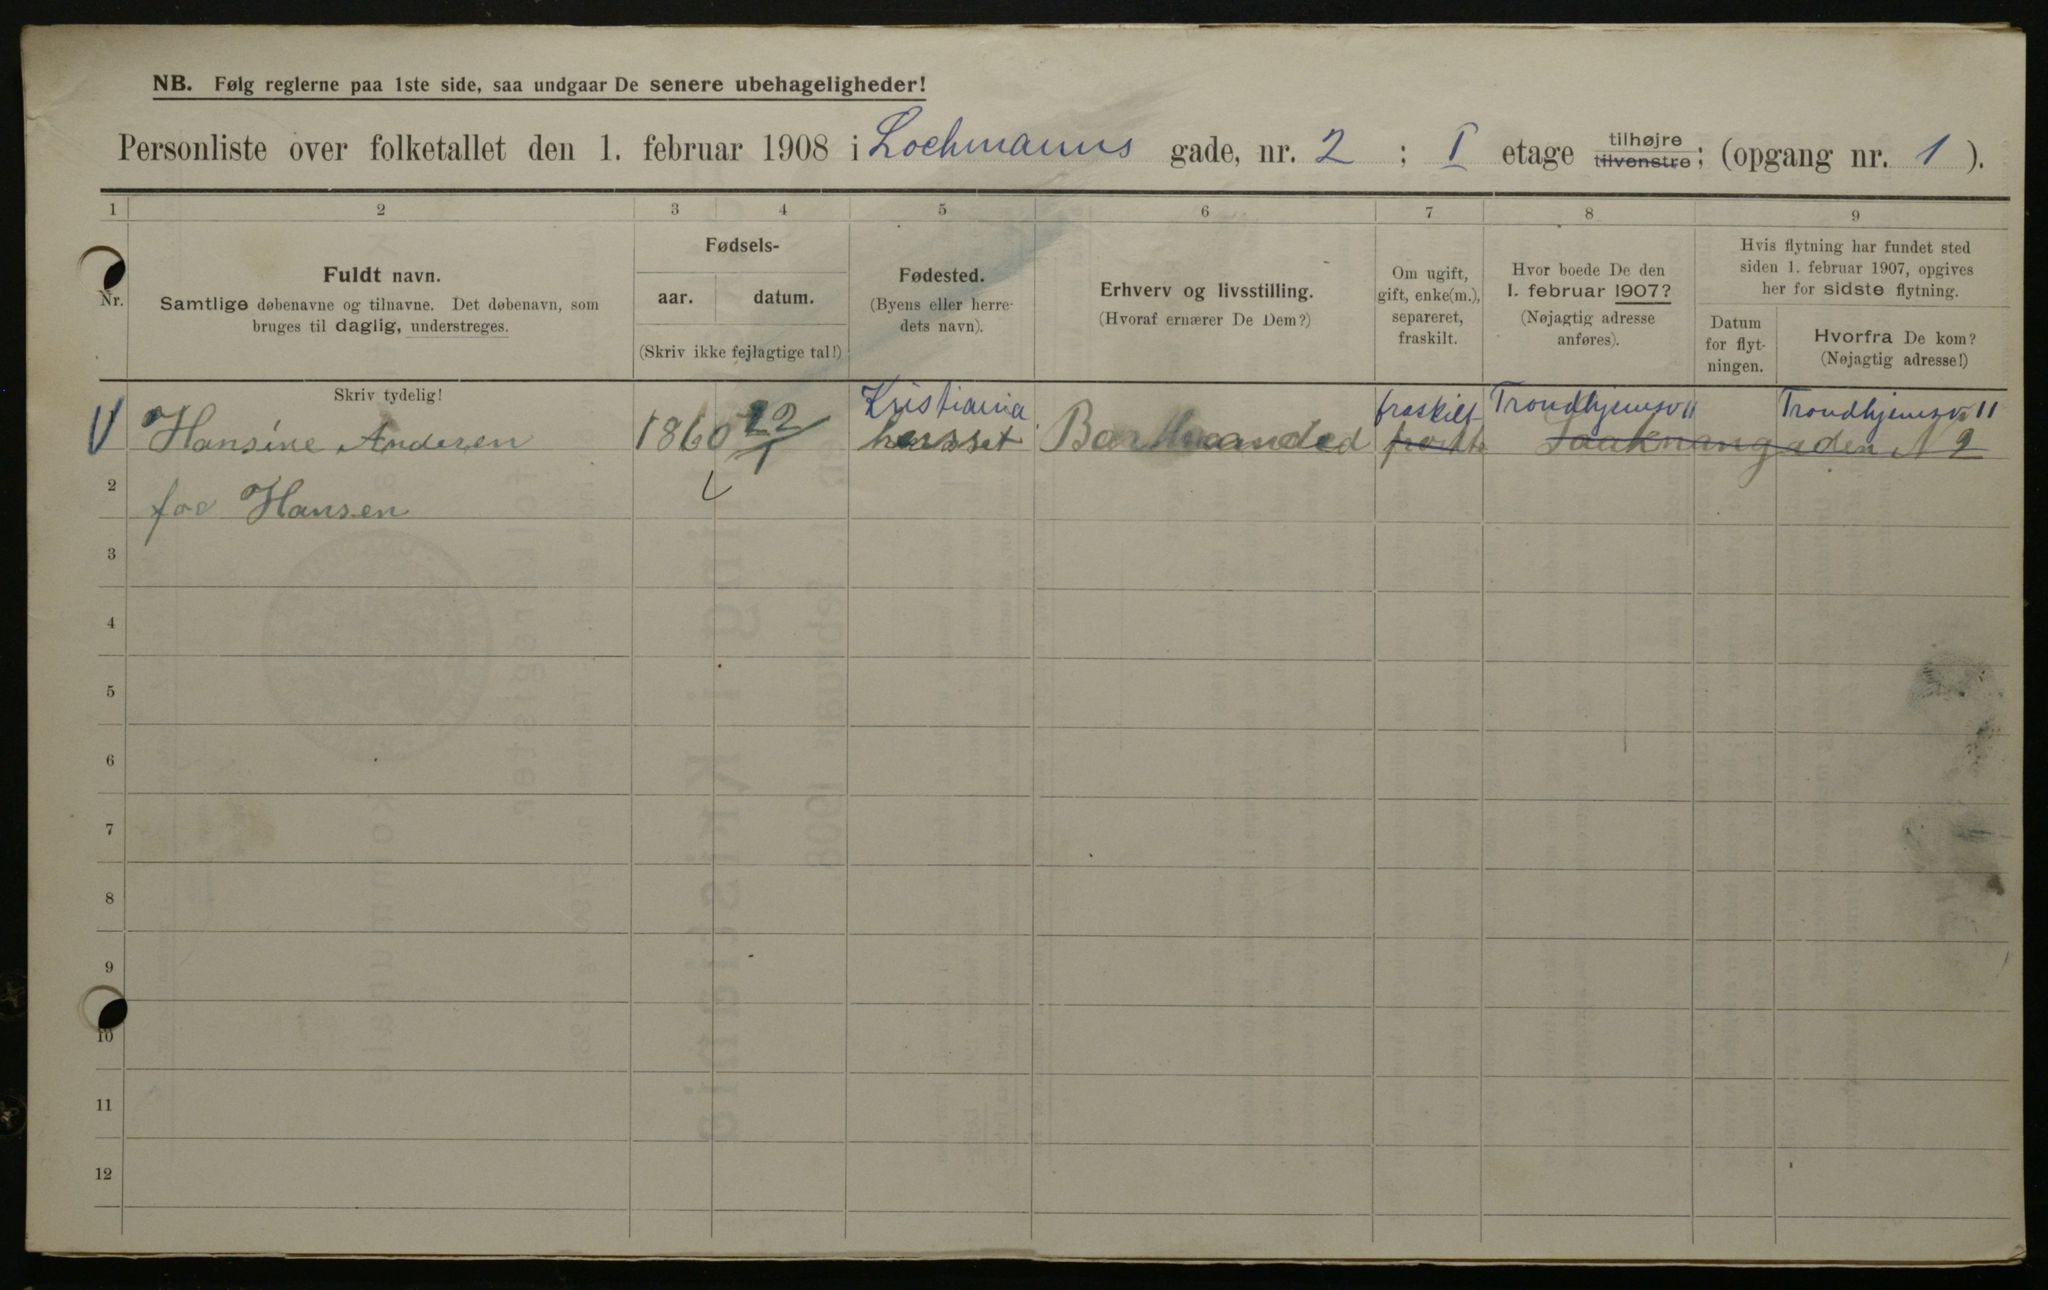 NB. Følg reglerne paa 1ste side, saa undgaar De senere ubehageligheder!
Personliste over folketallet den 1. februar 1908 i Lochmanns gade, nr. 2 ; I etage tilhøjre tilvenstre; (opgang nr. 1 ).
1 2 3 4 5 6 7 8 9
Nr.
Fuldt navn.
Samtlige døbenavne og tilnavne. Det døbenavn, som
bruges til daglig, understreges.
Fødsels-
aar. datum.
(Skriv ikke fejlagtige tal!)
Fødested.
(Byens eller herre-
dets navn).
Erhverv og livsstilling.
(Hvoraf ernærer De Dem?)
Om ugift,
gift, enke(m.),
separeret,
fraskilt.
Hvor boede De den
1. februar 1907?
(Nøjagtig adresse
anføres).
Hvis flytning har fundet sted
siden 1. februar 1907, opgives
her for sidste flytning.
Datum
for flyt-
ningen.
Hvorfra De kom?
(Nøjagtig adresse!)
Skriv tydelig!
Kristiania fraskilt Trondhjemsv 11 Trondhjemsv 11
Hansine Andersen 1860 22/1
2
Hansen
3
4
5
6
7
8
9
10
11
12